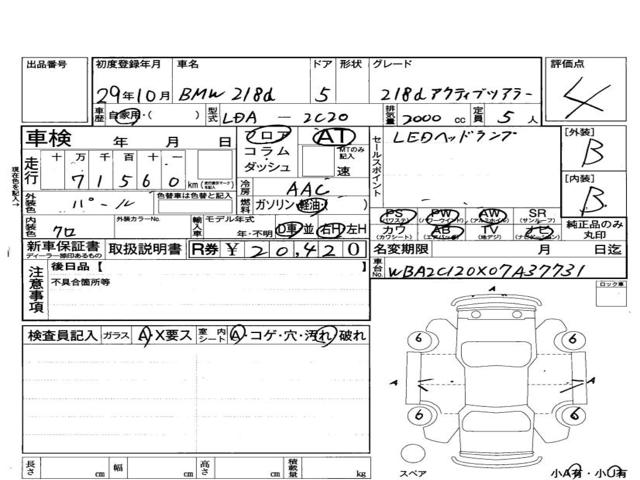 出品番号 初度登録年月 車名 ドア 形状 グレード 評価点
29年10月 BMW 218d 5 218d アクティブツアラー 4
車歴 自家用・( ) 型式 LDA - 2C20 排気量 2000 cc 定員 5 人
車検 年 月 日 フロア AT セールスポイント LEDヘッドランプ [外装] B
走行 十 万 千 百 十 一 コラム・ダッシュ MTのみ記入 速
71560 km
冷房 AAC [内装] B
外装色 パール 色替車は色替と記入 燃料 ガソリン 軽油
現在色を記入→
PS PW AW SR 純正品のみ丸印
(パワステ) (パワーウインド) (アルミホイル) (サンルーフ)
内装色 クロ 外装カラーNo. 輸入車 モデル年式 年・不明 D車 並 右H 左H
カワ AB TV ナビ
(カワシート) (エアバッグ) (地デジ) (ナビゲーション)
新車保証書 取扱説明書 R券 ¥ 20,420 名変期限 月 日迄
ディーラー捺印あるもの
車台No. WBA2C120X07A37731
注意事項 後日品【
不具合箇所等
ロック車
検査員記入 ガラス A・X要ス 室内シート A・コゲ・穴・汚れ・破れ
6 6
A A
6 6
スペア 小A有・小U有
長さ cm 幅 cm 高さ cm 積載量 kg